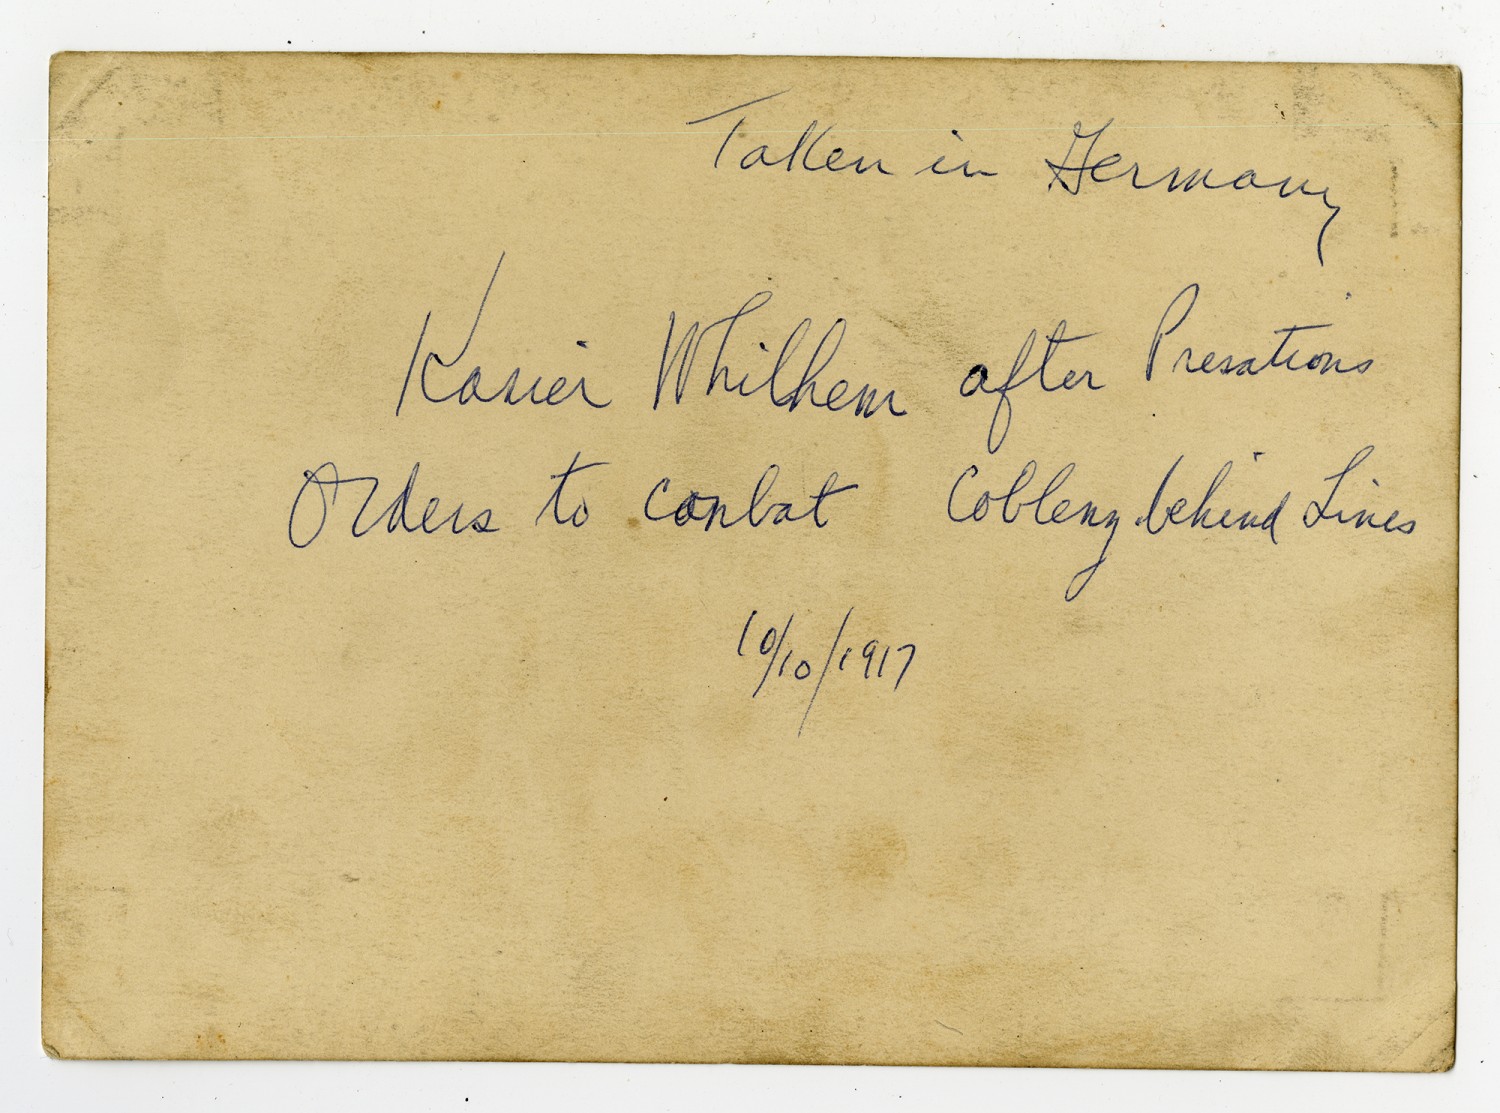 Taken in Germany
Kasier Whilhem after Presations
Orders to conbat Coblenz behind Lines
10/10/1917